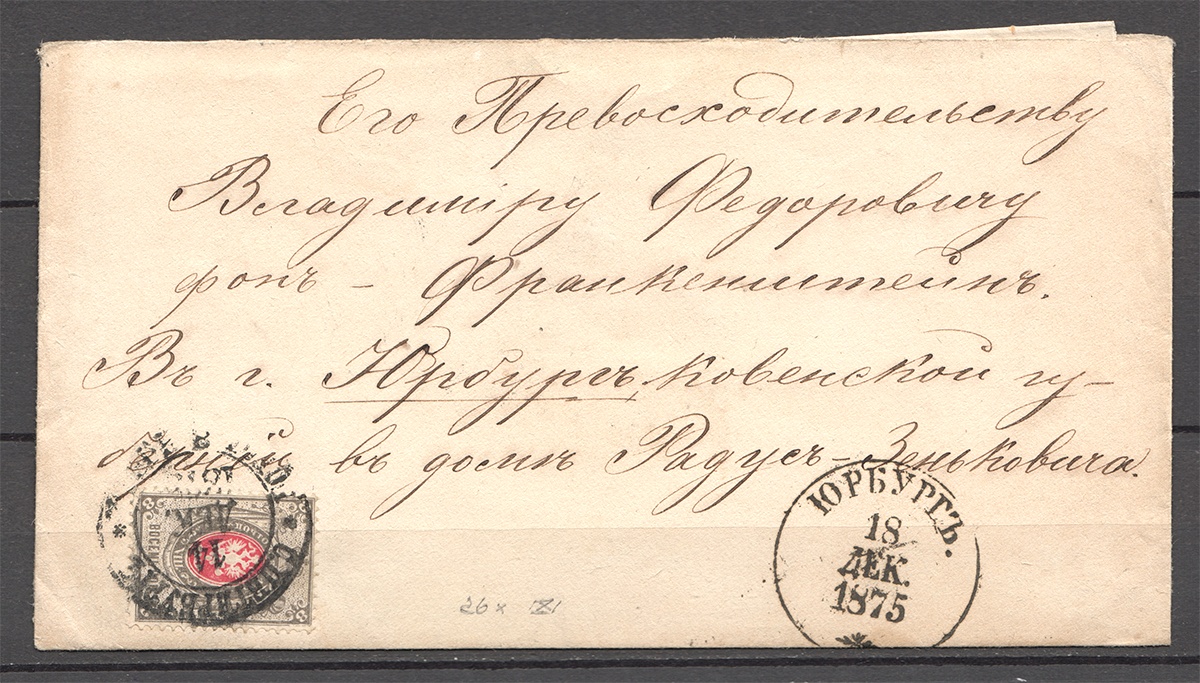 Его Превосходительству
Владиміру Федоровичу
фонъ – Франкенштейнъ.
Въ г. Юрбургъ, Ковенской гу-
берніи въ домѣ Радусъ-Зеньковича.
ЮРБУРГЪ.
18
ДЕК.
1875
ДЕК.
14
ВОСЕМ
8
8
26 x